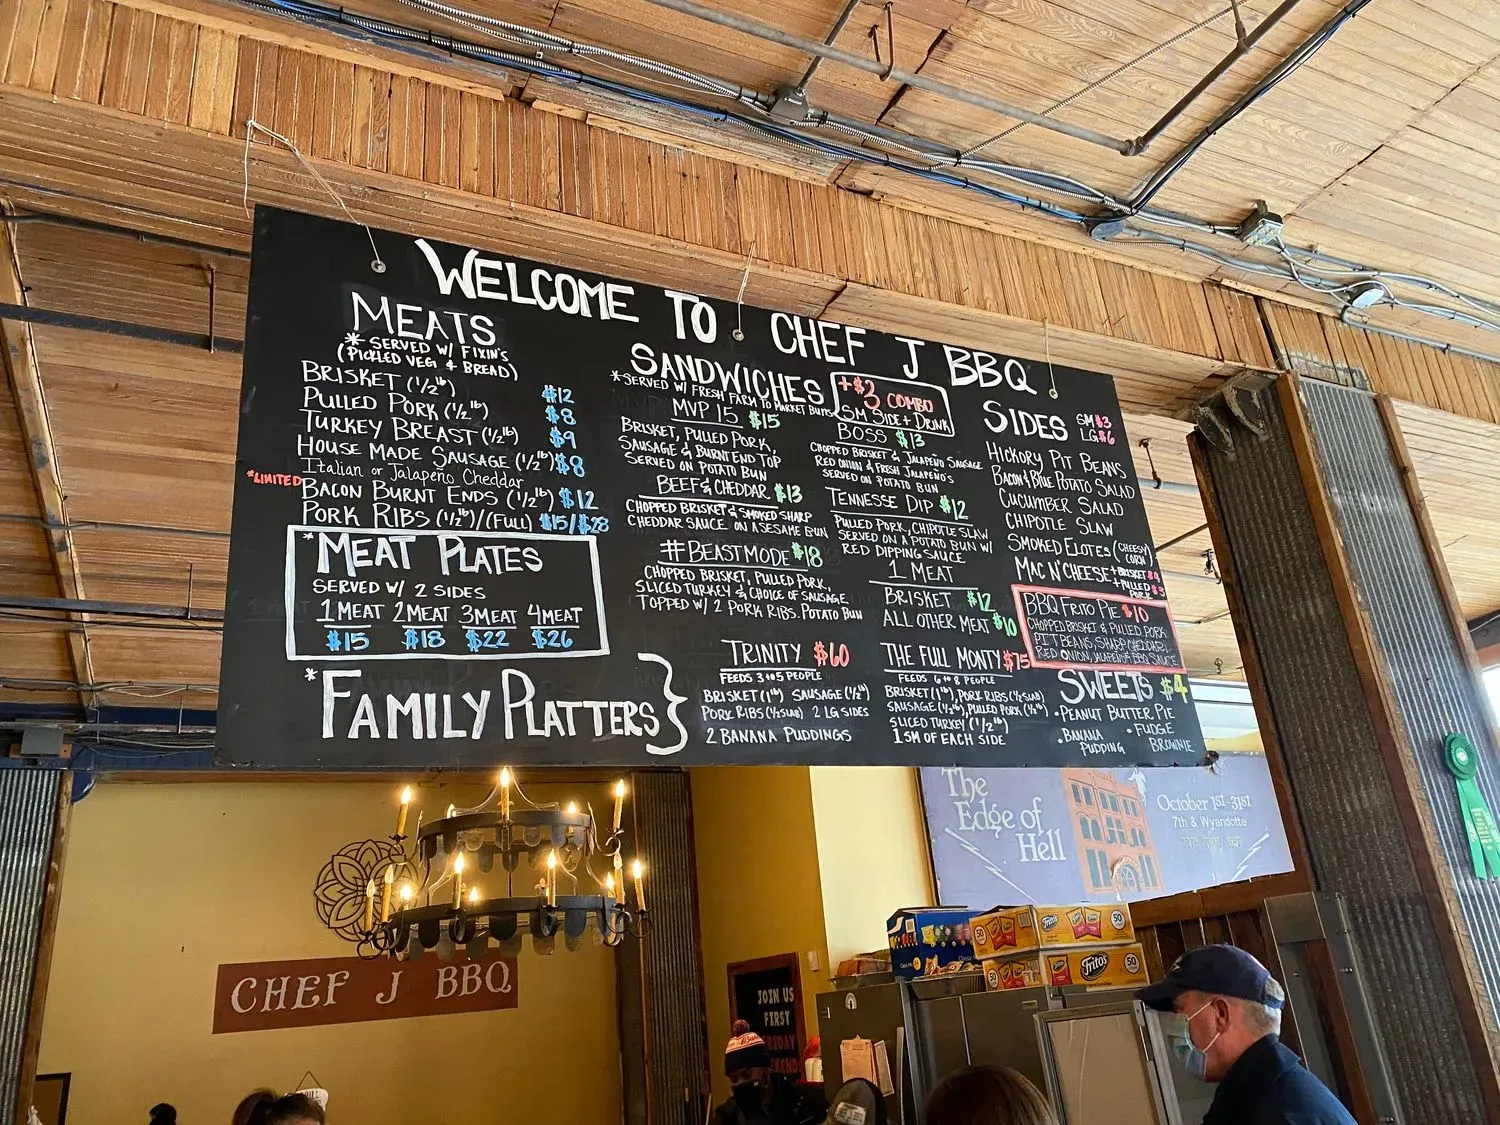 WELCOME TO CHEF J BBQ
MEATS
* SERVED W/ FIXIN'S
(PICKLED VEGI & BREAD)
BRISKET (1/2 lb) $12
PULLED PORK (1/2 lb) $8
TURKEY BREAST (1/2 lb) $9
HOUSE MADE SAUSAGE (1/2 lb) $8
Italian or Jalapeño Cheddar
*LIMITED BACON BURNT ENDS (1/2 lb) $12
PORK RIBS (1/2 lb)/(FULL) $15/$28
*MEAT PLATES
SERVED W/ 2 SIDES
1 MEAT 2 MEAT 3 MEAT 4 MEAT
$15 $18 $22 $26
SANDWICHES
*SERVED W/ FRESH FARM TO MARKET BUNS
+$3 COMBO
SM SIDE + DRINK
MVP 15 $15
BRISKET, PULLED PORK,
SAUSAGE & BURNT END TOP
SERVED ON POTATO BUN
BEEF & CHEDDAR $13
CHOPPED BRISKET & SMOKED SHARP
CHEDDAR SAUCE ON A SESAME BUN
#BEASTMODE $18
CHOPPED BRISKET, PULLED PORK,
SLICED TURKEY & CHOICE OF SAUSAGE
TOPPED W/ 2 PORK RIBS. POTATO BUN
BOSS $13
CHOPPED BRISKET & JALAPEÑO SAUSAGE
RED ONION & FRESH JALAPEÑO'S
SERVED ON POTATO BUN
TENNESSE DIP $12
PULLED PORK, CHIPOTLE SLAW
SERVED ON A POTATO BUN W/
RED DIPPING SAUCE
1 MEAT
BRISKET $12
ALL OTHER MEAT $10
SIDES SM $3
LG $6
HICKORY PIT BEANS
BACON & BLUE POTATO SALAD
CUCUMBER SALAD
CHIPOTLE SLAW
SMOKED ELOTES (CHEESY
CORN)
MAC N' CHEESE + BRISKET $4
+ PULLED $3
PORK
BBQ FRITO PIE $10
CHOPPED BRISKET & PULLED PORK
PIT BEANS, SHARP CHEDDAR,
RED ONION, JALAPEÑO & BBQ SAUCE
*FAMILY PLATTERS
TRINITY $60
FEEDS 3 to 5 PEOPLE
BRISKET (1 lb) SAUSAGE (1/2 lb)
PORK RIBS (1/2 SLAB) 2 LG SIDES
2 BANANA PUDDINGS
THE FULL MONTY $75
FEEDS 6 to 8 PEOPLE
BRISKET (1 lb), PORK RIBS (1/2 SLAB)
SAUSAGE (1/2 lb), PULLED PORK (1/2 lb)
SLICED TURKEY (1/2 lb)
1 SM OF EACH SIDE
SWEETS $4
• PEANUT BUTTER PIE
• BANANA
PUDDING
• FUDGE
BROWNIE
The
Edge of
Hell
October 1st-31st
7th & Wyandotte
CHEF J BBQ
JOIN US
FIRST
50
Fritos
50
50
Fritos
50